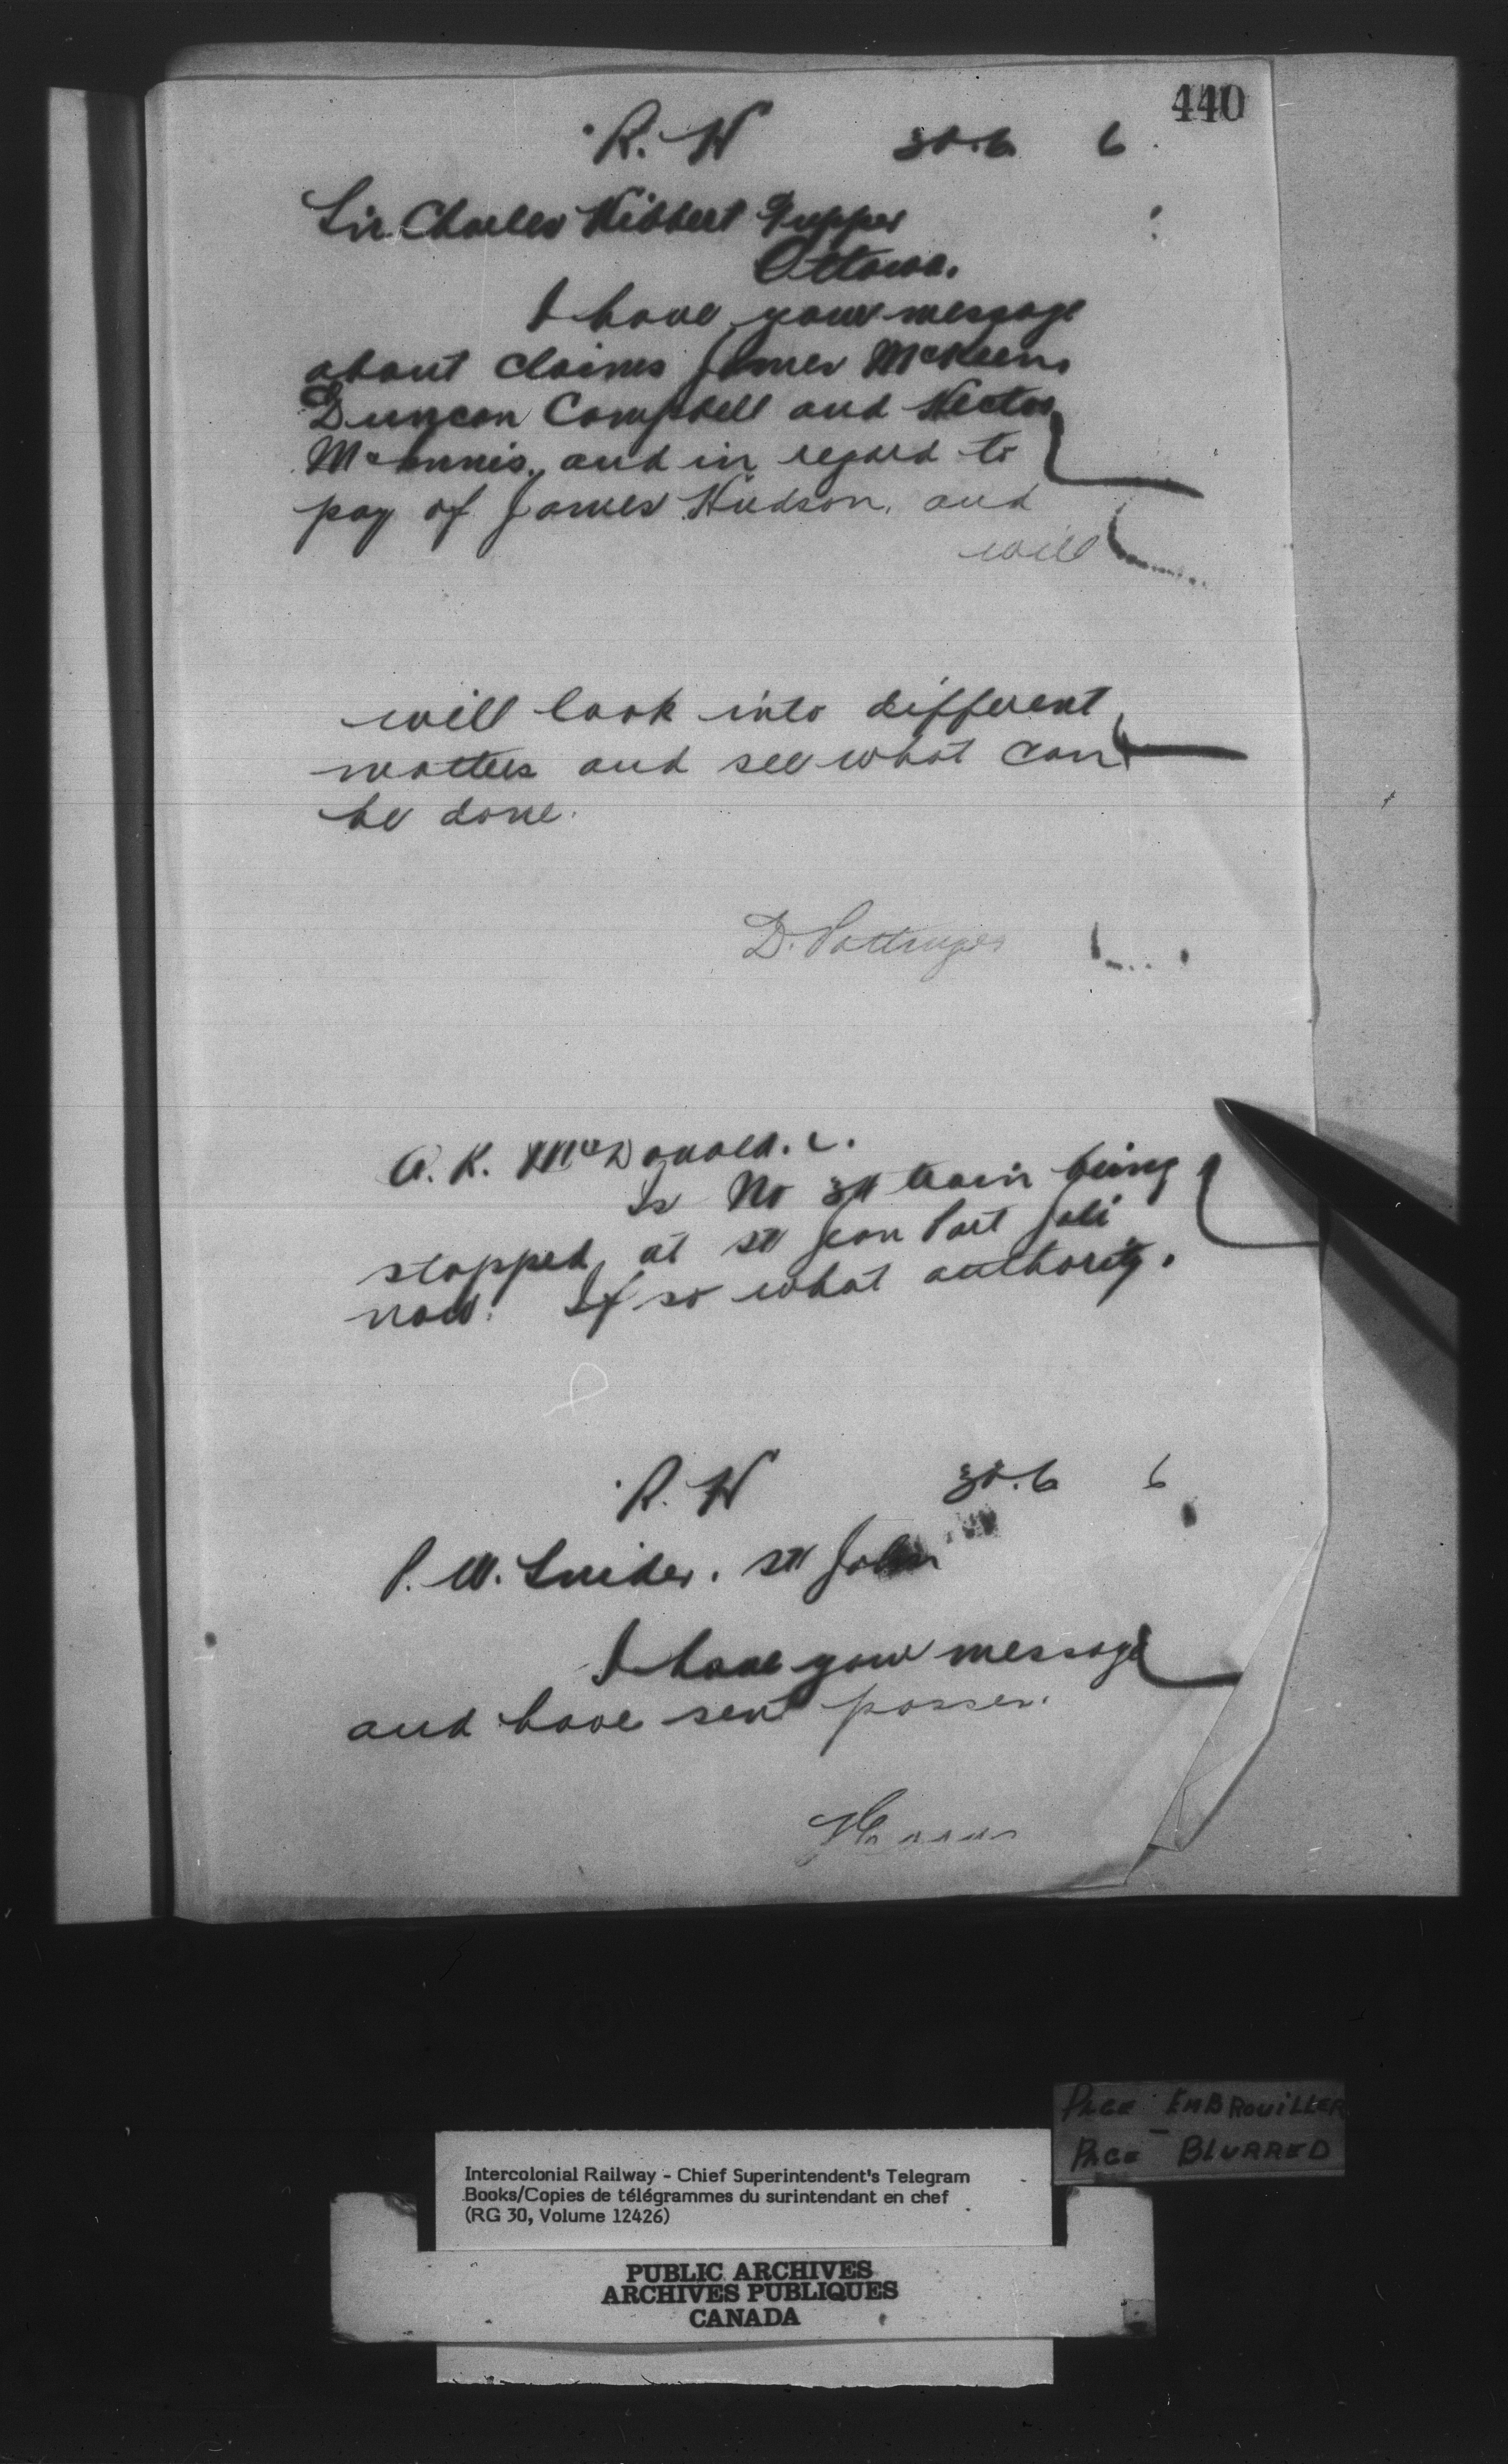 440
R. W 30.6 6
Sir Charles Hibbert Tupper
Ottawa.
I have your message
about claims James McKeen,
Duncan Campbell and Hector
McInnis, and in regard to
pay of James Hudson, and
will
will look into different
matters and see what can
be done.
D. Pottinger
A. K. McDonald. C.
Is No 34 train being
stopped at St Jean Port Joli
now. If so what authority.
R. W 30.6 6
P. W. Snider. St John
I have your message
and have sent passes.
PAGE EMBROUILLER
PAGE BLURRED
Intercolonial Railway - Chief Superintendent's Telegram
Books/Copies de télégrammes du surintendant en chef
(RG 30, Volume 12426)
PUBLIC ARCHIVES
ARCHIVES PUBLIQUES
CANADA